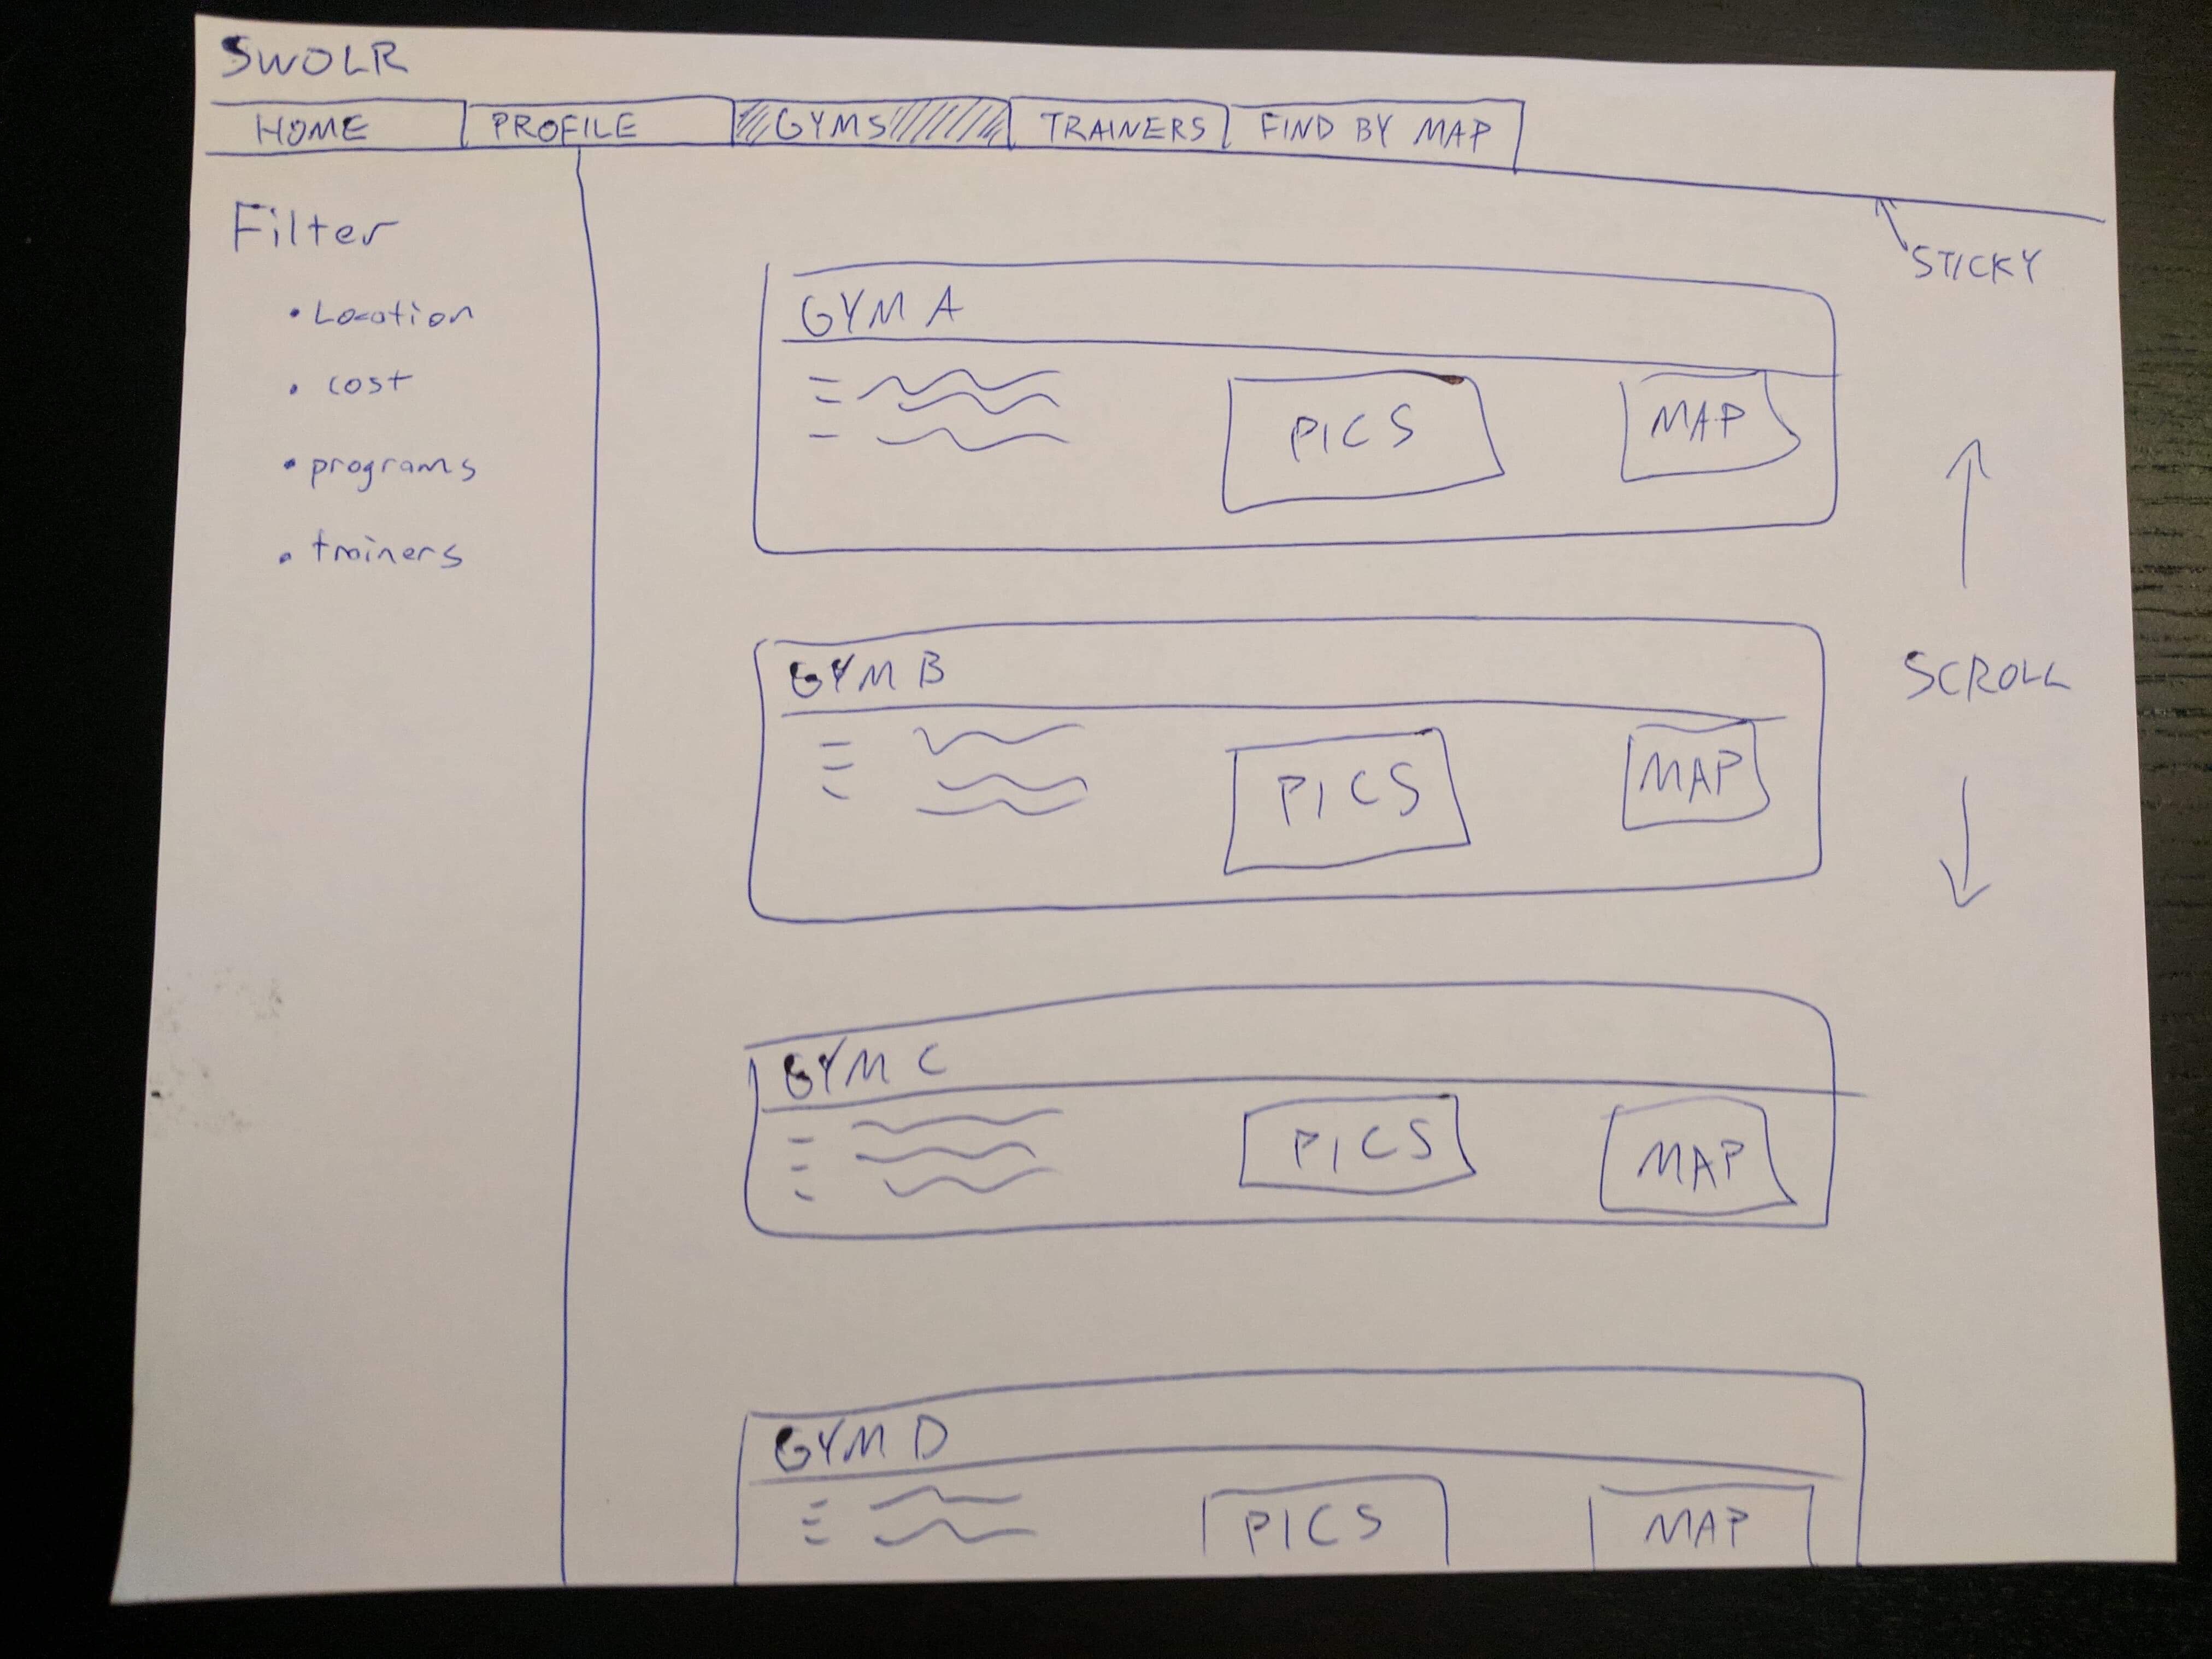 SWOLR
HOME PROFILE GYMS TRAINERS FIND BY MAP
STICKY
Filter
• Location
• cost
• programs
• trainers
GYM A
PICS MAP
GYM B
PICS MAP
SCROLL
GYM C
PICS MAP
GYM D
PICS MAP